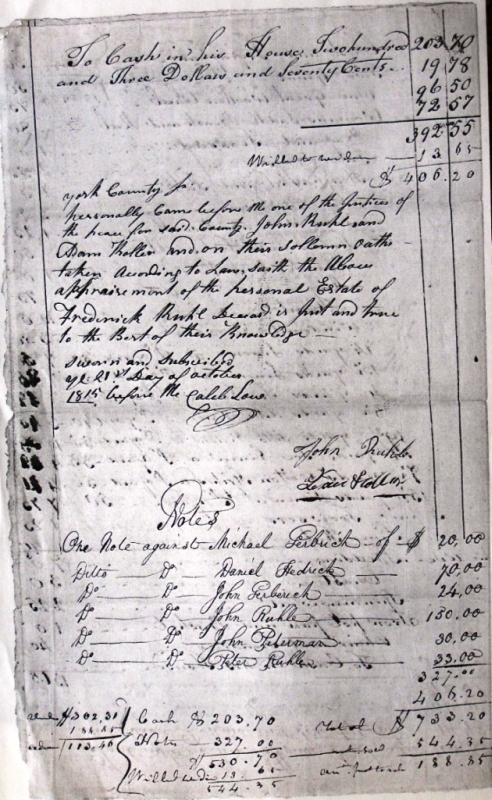 To Cash in his House Twohundred 203 70
and Three Dollars and Seventy Cents 19 78
96 50
72 57
392 55
Willed to 13 65
$ 406.20
York County Ss.
Personally Came before me one of the Justices of
the peace for said County John Ruhl and
Adam and on their sollemn Oaths
taken According to Law, saith the Above
appraisement of the Personal Estate of
Frederick Ruhl Deceasd is Just and true
to the Best of their Knowledge
Sworn and Subscribed
ye 21st Day of october
1815 before me Caleb Low
John Ruhl
Notes
One Note against Michael Gerbrick of $ 20.00
Ditto Do Daniel Hedrick 70.00
Do Do John Gerberick 24.00
Do Do John Ruhle 150.00
Do Do John Peterman 30.00
Do Do Peter Ruhle 33.00
327.00
406.20
Cash $ 203.70 total $ 733.20
Notes 327.00 544.35
$ 530.70 188.85
Willed 13.65
544.35